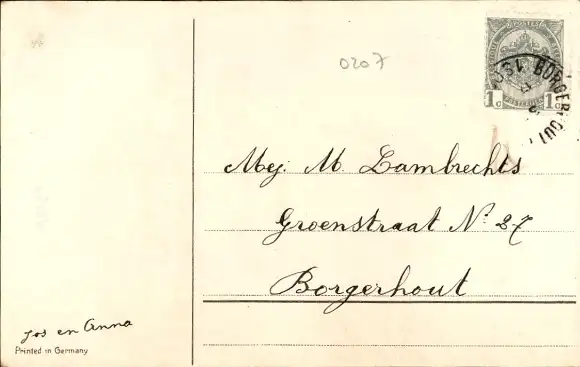 0207
POSTES
1c 1c
POSTERIJEN
BORGERHOUT
Mej. M. Lambrechts
Groenstraat Nº 27
Borgerhout
Jos en Anna
Printed in Germany